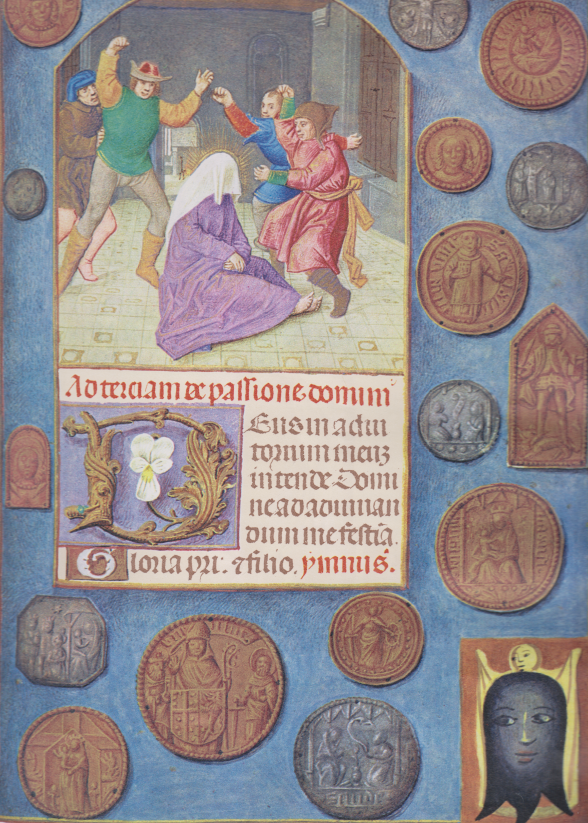 Ad terciam de passione domini
DEus in adiu
torium meuz
intende Domi
ne ad adiuuan
dum me festia.
Gloria pri. ⁊ filio. ymnus.